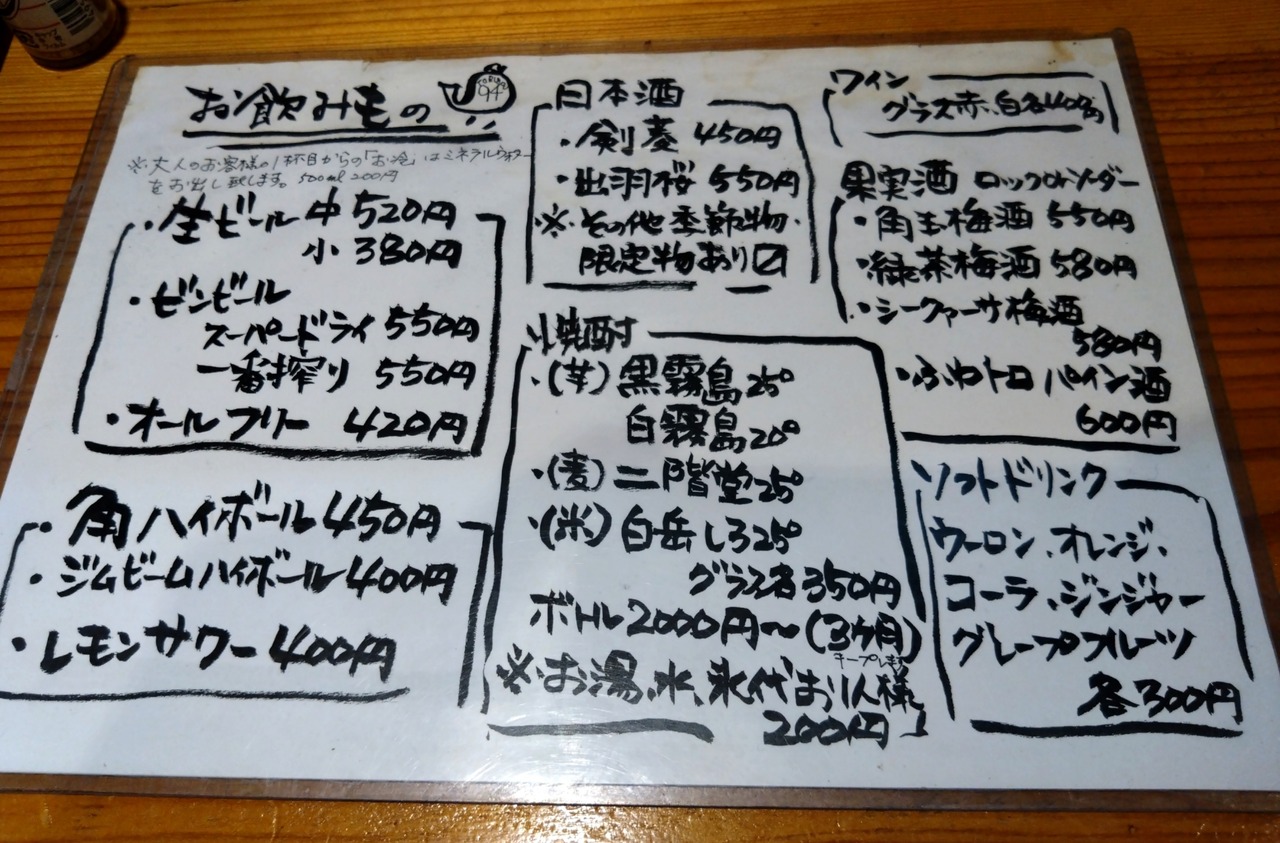 お飲みもの
※大人のお客様の1杯目からの「お冷」はミネラルウォーター
をお出し致します。500ml 200円
・生ビール 中 520円
小 380円
・ビンビール
スーパードライ 550円
一番搾り 550円
・オールフリー 420円
・角ハイボール 450円
・ジムビームハイボール 400円
・レモンサワー 400円
日本酒
・剣菱 450円
・出羽桜 550円
※その他季節物・
限定物あり〼
焼酎
・(芋) 黒霧島 25°
白霧島 20°
・(麦) 二階堂 25°
・(米) 白岳しろ 25°
グラス各 350円
ボトル 2000円〜(3ヶ月)
キープします
※お湯、水、氷代お1人様
200円
ワイン
グラス赤、白各400円
果実酒 ロックorソーダー
・角玉梅酒 550円
・緑茶梅酒 580円
・シークァーサ梅酒
580円
・ふわトロ パイン酒
600円
ソフトドリンク
ウーロン、オレンジ、
コーラ、ジンジャー
グレープフルーツ
各300円